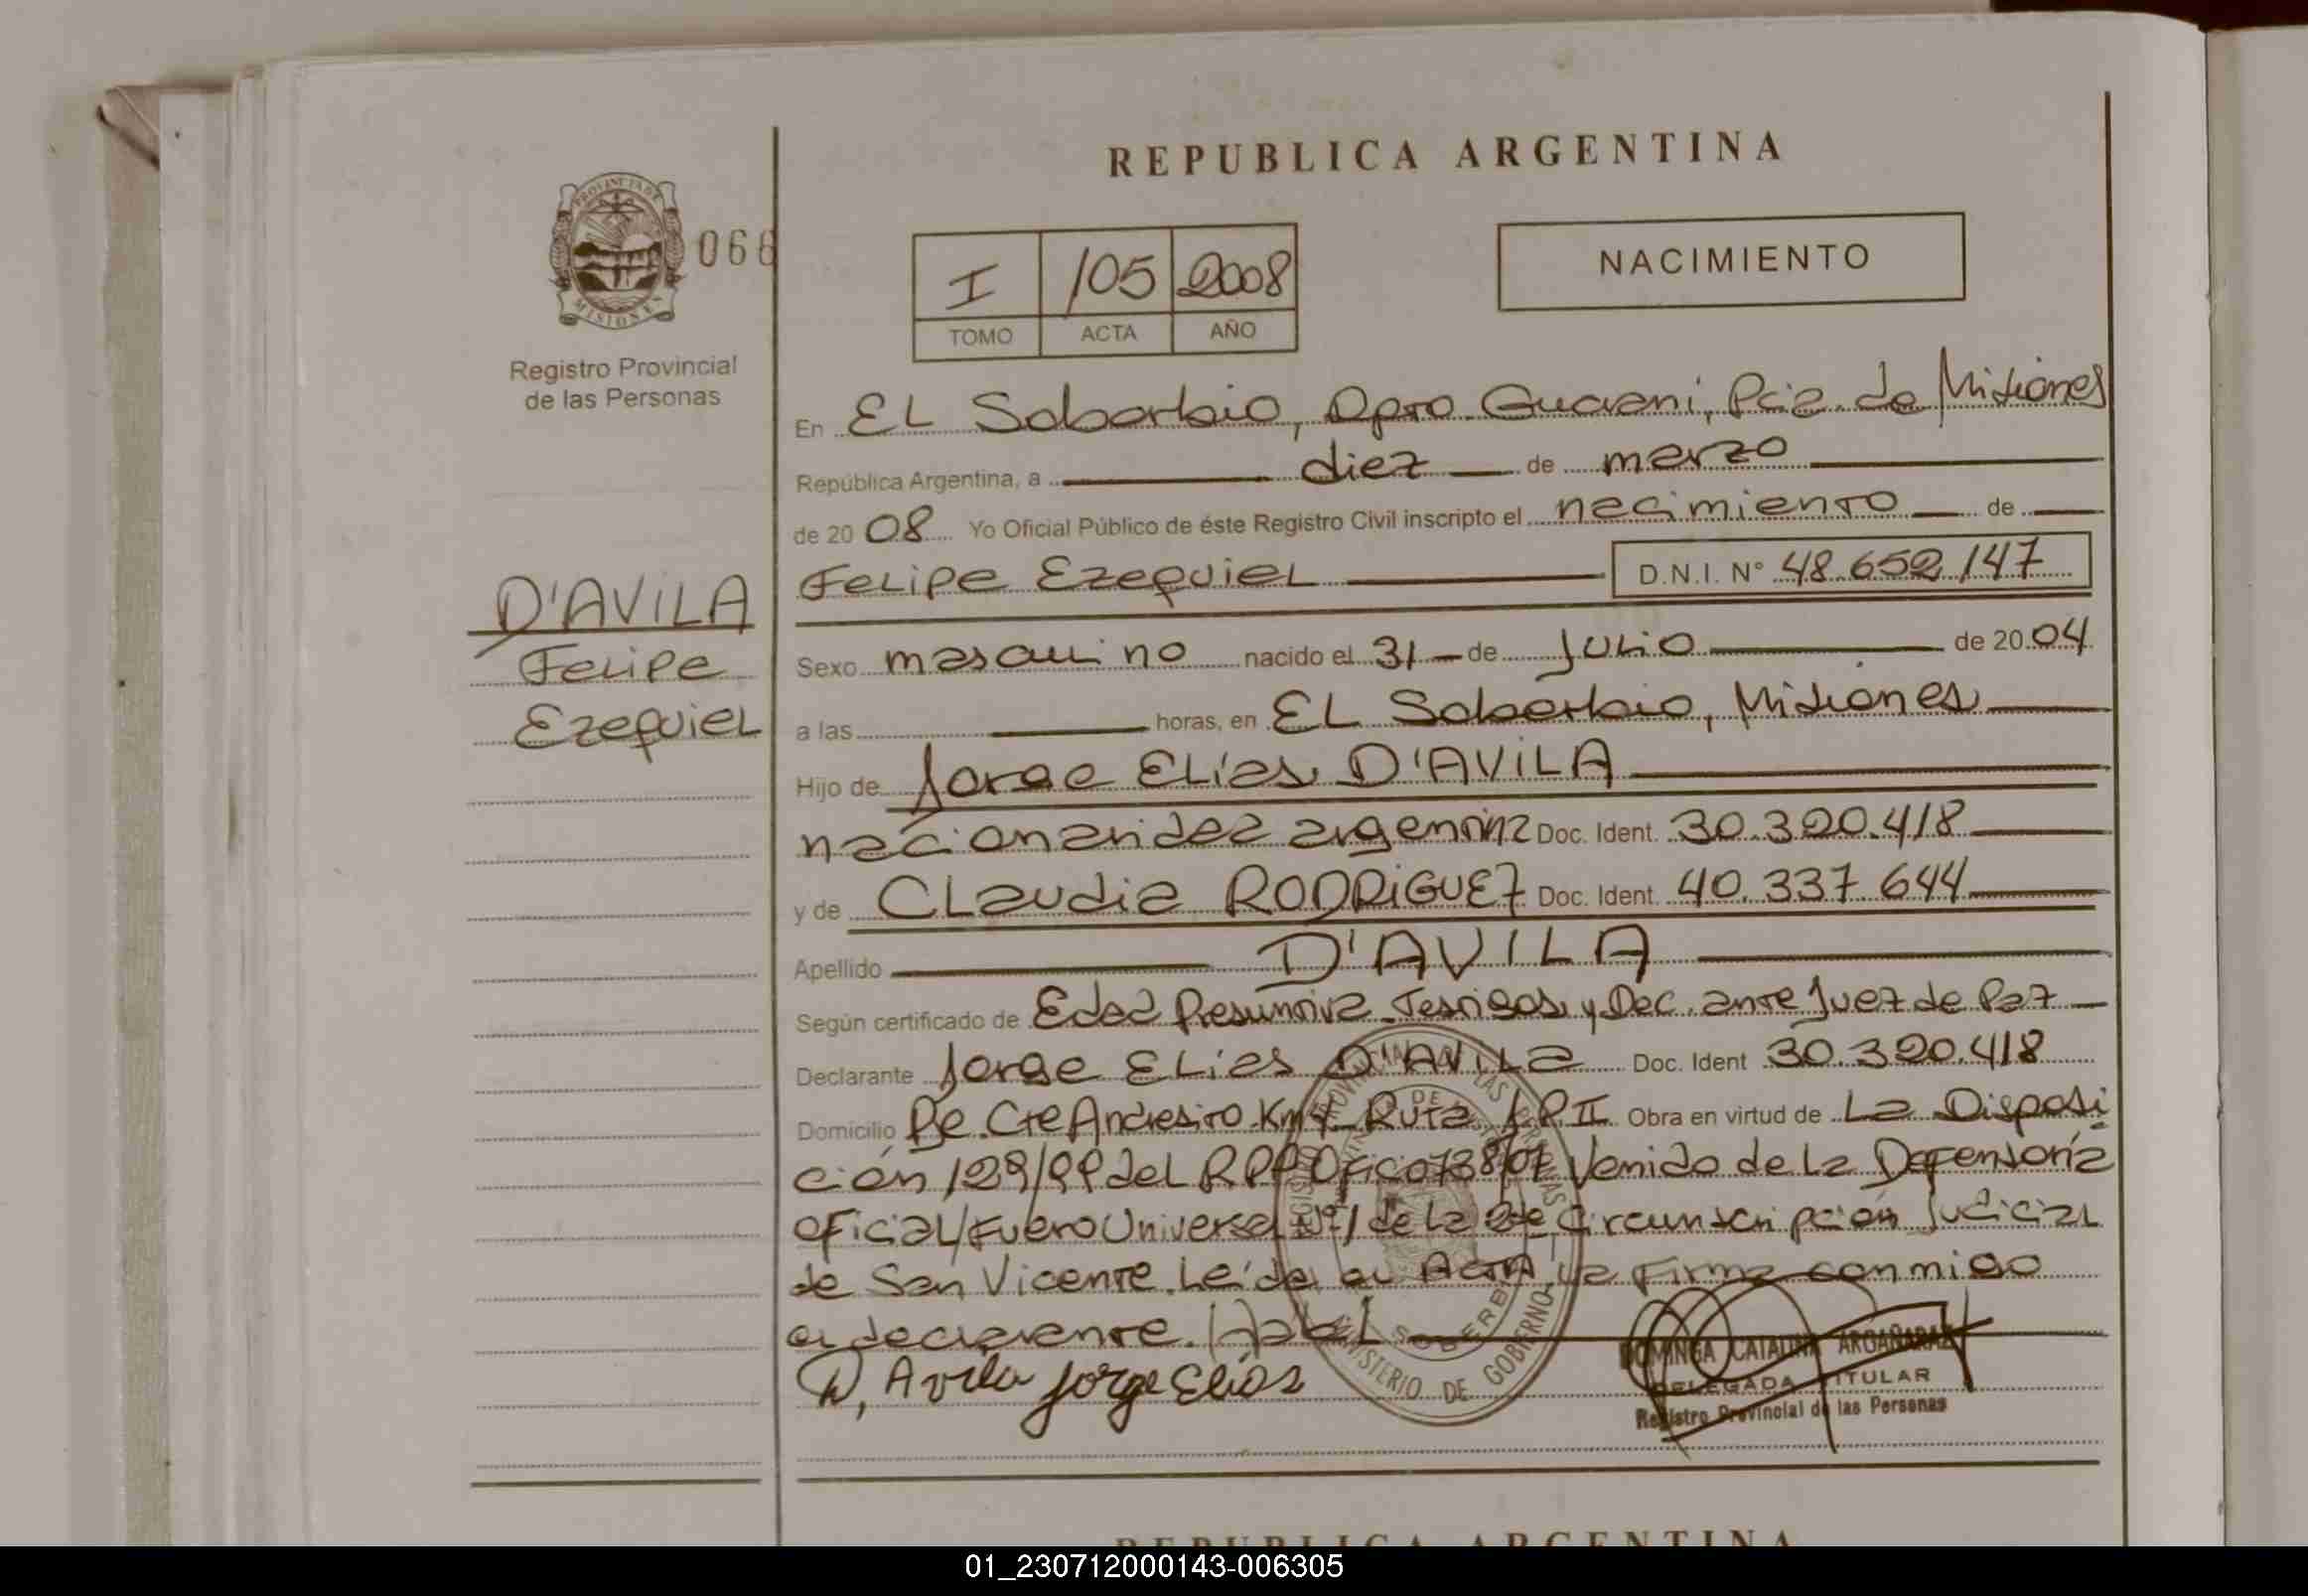 REPUBLICA ARGENTINA
PROVINCIA DE
MISIONES
066
Registro Provincial
de las Personas
I 105 2008
TOMO ACTA AÑO
NACIMIENTO
En EL Soberbio, Dpto. Guarani, Pcia. de Misiones
República Argentina, a diez de marzo
de 2008 Yo Oficial Público de éste Registro Civil inscripto el nacimiento de
Felipe Ezequiel D.N.I. N° 48.652.147
D'AVILA
Felipe
Ezequiel
Sexo masculino nacido el 31 de Julio de 2004
a las horas, en EL Soberbio, Misiones
Hijo de Jorge Elías D'AVILA
nacionalidad argentina Doc. Ident. 30.320.418
y de Claudia RODRIGUEZ Doc. Ident. 40.337.644
Apellido D'AVILA
Según certificado de Edad Presuntiva Testigos y Dec. ante Juez de Paz
Declarante Jorge Elias D'AVILA Doc. Ident 30.320.418
Domicilio Cte Andresito Km Ruta Obra en virtud de La Disposi
ción 129/99 del RPP Oficio venido de la Defensoría
Oficial/Fuero Universal N°1 de la 2da Circunscripción Judicial
de San Vicente. Leída el ACTA, la firma conmigo
el declarante.
D, Avila Jorge Elias
DOMINGA CATALINA ARGAÑARAZ
DELEGADA TITULAR
Registro Provincial de las Personas
MINISTERIO DE GOBIERNO
REPUBLICA ARGENTINA
01_230712000143-006305